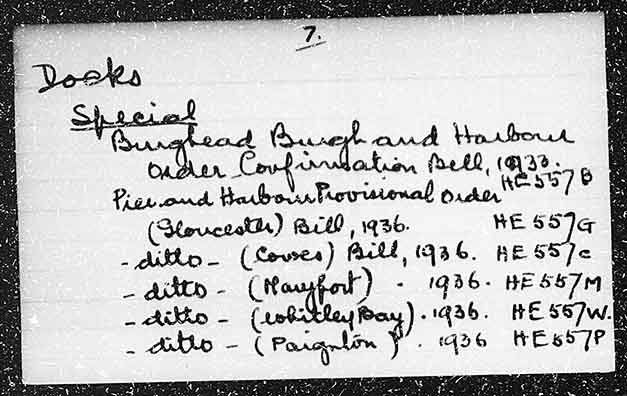 7.
Docks
Special
Burghead Burgh and Harbour
Order Confirmation Bill, 1933.
HE 557 B
Pier and Harbour Provisional Order
(Gloucester) Bill, 1936. HE 557 G
- ditto - (Cowes) Bill, 1936. HE 557 C
- ditto - (Maryport) . 1936 . HE 557 M
- ditto - (Whitley Bay) . 1936. HE 557 W.
- ditto - (Paignton) . 1936 HE 557 P